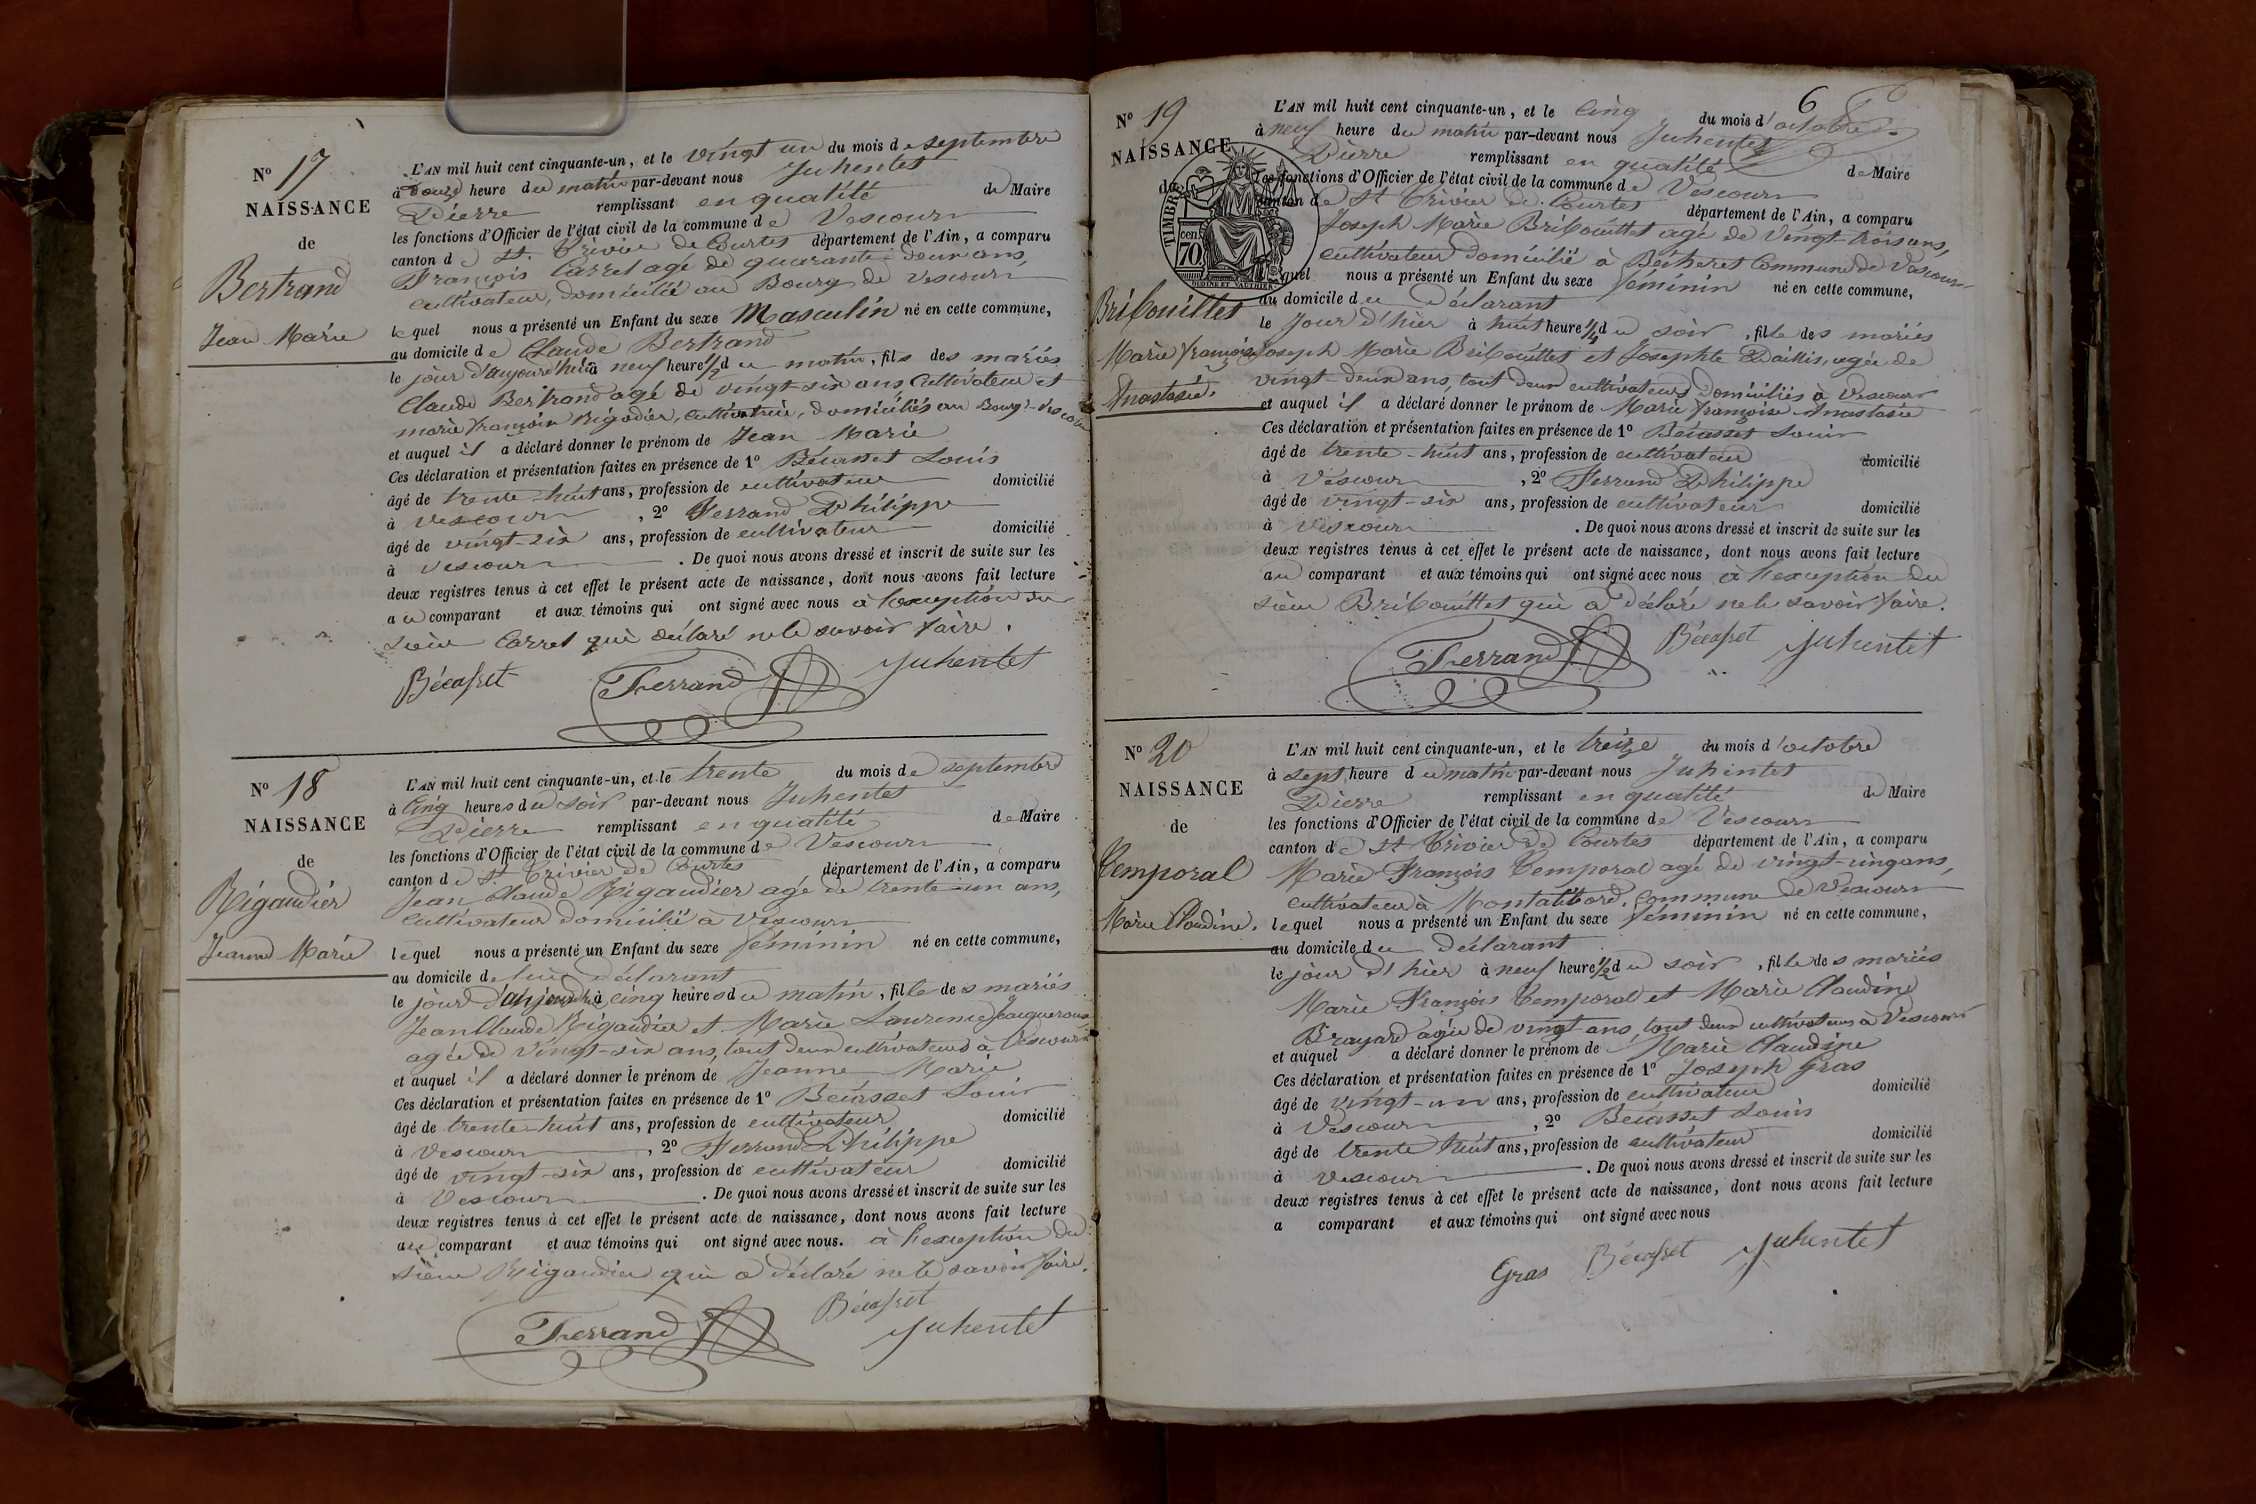 N° 17
NAISSANCE
de
Bertrand
Jean Marie
L'AN mil huit cent cinquante-un, et le vingt un du mois de septembre
à douze heure du matin par-devant nous Juhentet
Pierre remplissant en qualité de Maire
les fonctions d'Officier de l'état civil de la commune de Vescours
canton de St. Trivier de Courtes département de l'Ain, a comparu
François Carrel agé de quarante-deux ans,
cultivateur, domicilié au Bourg de Vescours
lequel nous a présenté un Enfant du sexe Masculin né en cette commune,
au domicile de Claude Bertrand
le jour d'aujourd'hui à neuf heure ½ du matin, fils des mariés
Claude Bertrand agé de vingt-six ans, cultivateur et
marie françoise Rigodier, cultivatrice, domiciliés au Bourg-Vescours
et auquel il a déclaré donner le prénom de Jean Marie
Ces déclaration et présentation faites en présence de 1° Bécasset Louis
âgé de trente-huit ans, profession de cultivateur domicilié
à Vescours, 2° Ferrand Philippe
âgé de vingt-six ans, profession de cultivateur domicilié
à Vescours. De quoi nous avons dressé et inscrit de suite sur les
deux registres tenus à cet effet le présent acte de naissance, dont nous avons fait lecture
au comparant et aux témoins qui ont signé avec nous à l'exception du
sieur Carrel qui déclaré ne le savoir faire.
Bécasset Ferrand Juhentet
N° 18
NAISSANCE
de
Rigaudier
Jeanne Marie
L'AN mil huit cent cinquante-un, et le trente du mois de septembre
à cinq heures du soir par-devant nous Juhentet
Pierre remplissant en qualité de Maire
les fonctions d'Officier de l'état civil de la commune de Vescours
canton de St Trivier de Courtes département de l'Ain, a comparu
Jean Claude Rigaudier agé de trente-un ans,
cultivateur domicilié à Vescours
lequel nous a présenté un Enfant du sexe féminin né en cette commune,
au domicile de lui déclarant
le jour d'aujourd'hui à cinq heures du matin, fille des mariés
Jean Claude Rigaudier et Marie Laurence
agée de vingt-six ans, tout deux cultivateurs à Vescours
et auquel il a déclaré donner le prénom de Jeanne Marie
Ces déclaration et présentation faites en présence de 1° Bécasset Louis
âgé de trente-huit ans, profession de cultivateur domicilié
à Vescours, 2° Ferrand Philippe
âgé de vingt-six ans, profession de cultivateur domicilié
à Vescours. De quoi nous avons dressé et inscrit de suite sur les
deux registres tenus à cet effet le présent acte de naissance, dont nous avons fait lecture
au comparant et aux témoins qui ont signé avec nous. à l'exception du
sieur Rigaudier qui a déclaré ne le savoir faire.
Ferrand Bécasset
Juhentet
6
N° 19
NAISSANCE
de
Bribouillet
Marie françoise
Anastasie.
TIMBRE
70 cen.
L'AN mil huit cent cinquante-un, et le cinq du mois d'octobre
à neuf heure du matin par-devant nous Juhentet
Pierre remplissant en qualité de Maire
les fonctions d'Officier de l'état civil de la commune de Vescours
canton de St Trivier de Courtes département de l'Ain, a comparu
Joseph Marie Bribouillet agé de vingt-trois ans,
cultivateur domicilié à Bécheret Commune de Vescours
lequel nous a présenté un Enfant du sexe féminin né en cette commune,
au domicile du déclarant
le Jour d'hier à huit heure ¼ du soir, fille des mariés
Joseph Marie Bribouillet et Josephte Paillis, agée de
vingt-deux ans, tout deux cultivateurs domiciliés à Vescours
et auquel il a déclaré donner le prénom de Marie françoise Anastasie
Ces déclaration et présentation faites en présence de 1° Bécasset Louis
âgé de trente-huit ans, profession de cultivateur domicilié
à Vescours, 2° Ferrand Philippe
âgé de vingt-six ans, profession de cultivateur domicilié
à Vescours. De quoi nous avons dressé et inscrit de suite sur les
deux registres tenus à cet effet le présent acte de naissance, dont nous avons fait lecture
au comparant et aux témoins qui ont signé avec nous à l'exception du
sieur Bribouillet qui a déclaré ne le savoir faire.
Ferrand Bécasset Juhentet
N° 20
NAISSANCE
de
Temporal
Marie Claudine.
L'AN mil huit cent cinquante-un, et le treize du mois d'octobre
à sept heure du matin par-devant nous Juhentet
Pierre remplissant en qualité de Maire
les fonctions d'Officier de l'état civil de la commune de Vescours
canton de St Trivier de Courtes département de l'Ain, a comparu
Marie François Temporal agé de vingt-cinq ans,
cultivateur à Commune de Vescours
lequel nous a présenté un Enfant du sexe féminin né en cette commune,
au domicile du déclarant
le jour d'hier à neuf heure ½ du soir, fille des mariés
Marie François Temporal et Marie Claudine
Brayard agée de vingt ans, tout deux cultivateurs à Vescours
et auquel a déclaré donner le prénom de Marie Claudine
Ces déclaration et présentation faites en présence de 1° Joseph Gras
âgé de vingt-un ans, profession de cultivateur domicilié
à Vescours, 2° Bécasset Louis
âgé de trente huit ans, profession de cultivateur domicilié
à Vescours. De quoi nous avons dressé et inscrit de suite sur les
deux registres tenus à cet effet le présent acte de naissance, dont nous avons fait lecture
a comparant et aux témoins qui ont signé avec nous
Gras Bécasset Juhentet